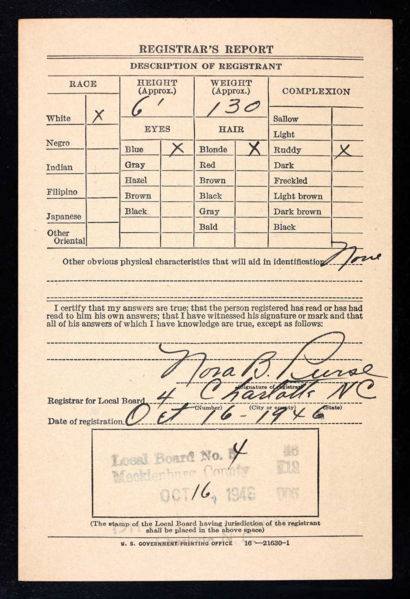 REGISTRAR'S REPORT
DESCRIPTION OF REGISTRANT
RACE
HEIGHT (Approx.)
WEIGHT (Approx.)
COMPLEXION
6'
130
White X
Negro
Indian
Filipino
Japanese
Other Oriental
EYES
HAIR
Blue X
Gray
Hazel
Brown
Black
Blonde X
Red
Brown
Black
Gray
Bald
Sallow
Light
Ruddy X
Dark
Freckled
Light brown
Dark brown
Black
Other obvious physical characteristics that will aid in identification None
I certify that my answers are true; that the person registered has read or has had
read to him his own answers; that I have witnessed his signature or mark and that
all of his answers of which I have knowledge are true, except as follows:
Nora B. Purse
(Signature of registrar)
Registrar for Local Board 4 Charlotte NC
(Number) (City or county) (State)
Date of registration Oct 16 - 1946
Local Board No. 4 46
Mecklenburg County
OCT 16, 1946
(The stamp of the Local Board having jurisdiction of the registrant
shall be placed in the above space)
U. S. GOVERNMENT PRINTING OFFICE 16—21630-1